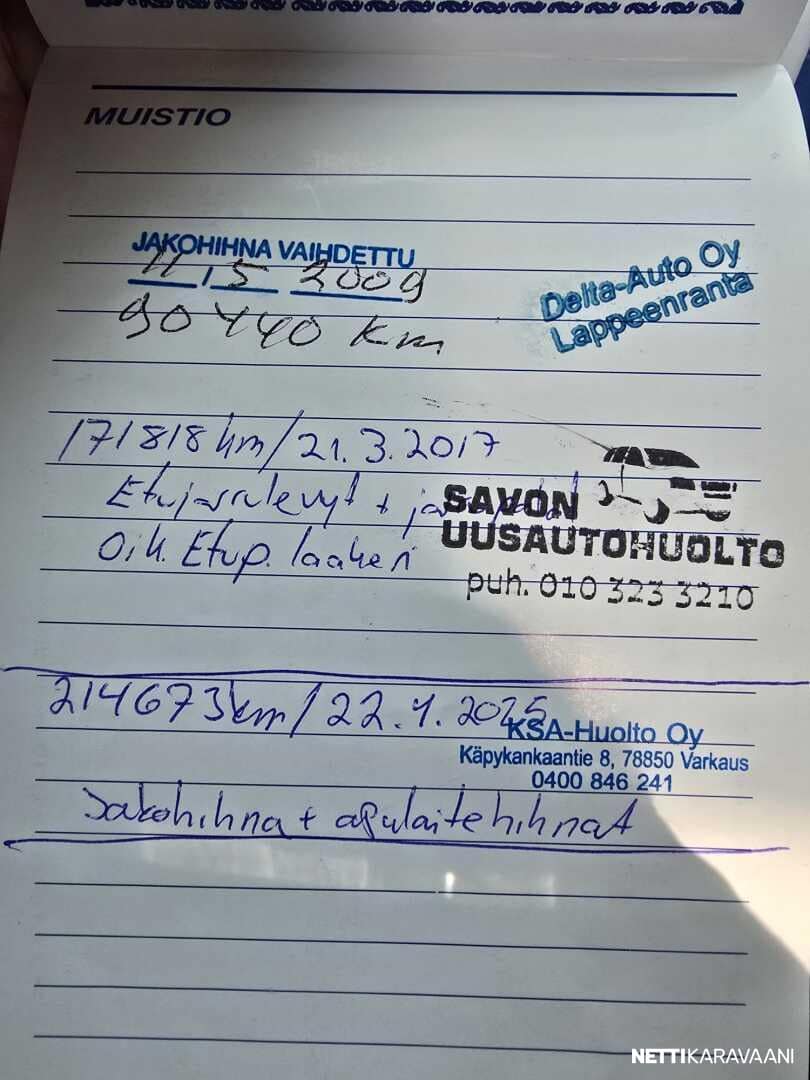 MUISTIO
JAKOHIHNA VAIHDETTU
11.5 2009
90440 km
Delta-Auto Oy
Lappeenranta
171818km/21.3.2017
Etujarrulevyt +
Oik. Etup. laakeri
SAVON
UUSAUTOHUOLTO
puh. 010 323 3210
214673km/22.4.2025
KSA-Huolto Oy
Käpykankaantie 8, 78850 Varkaus
0400 846 241
Jakohihna + apulaitehihnat
NETTIKARAVAANI